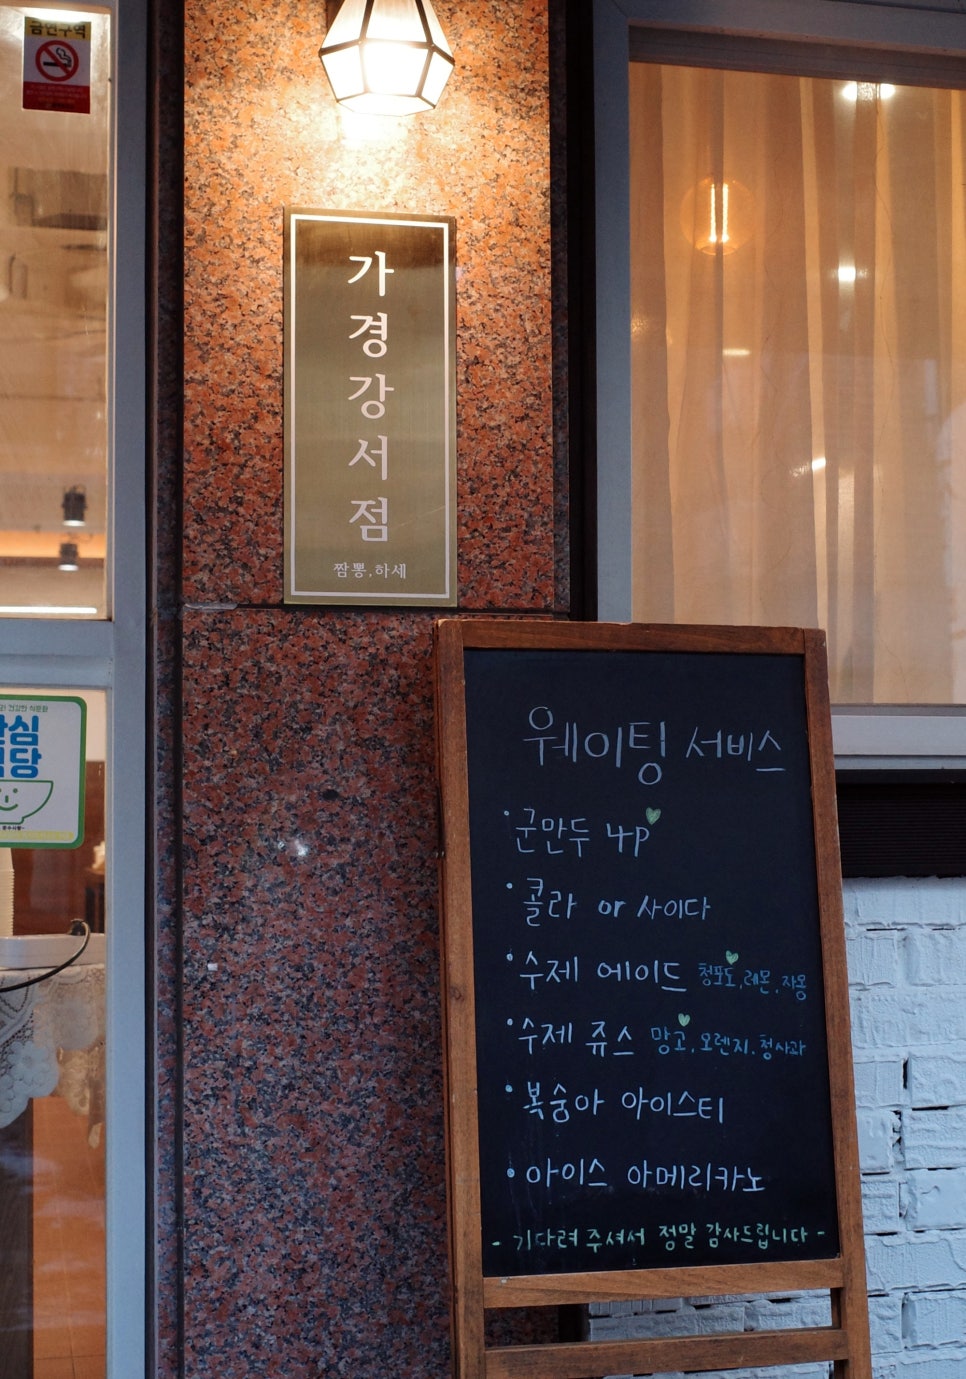 금연구역
가
경
강
서
점
짬뽕,하세
건강한 식문화
안심
식당
웨이팅 서비스
· 군만두 4P
· 콜라 or 사이다
· 수제 에이드 청포도, 레몬, 자몽
· 수제 쥬스 망고, 오렌지, 청사과
· 복숭아 아이스티
· 아이스 아메리카노
- 기다려 주셔서 정말 감사드립니다 -